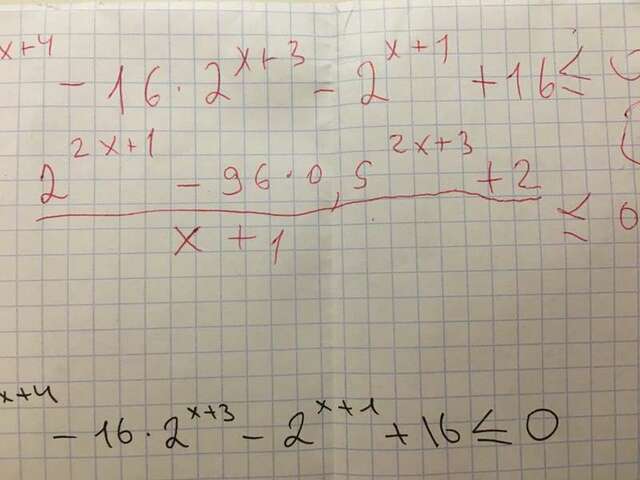 x+4 - 16·2^(x+3) - 2^(x+1) + 16 ≤
2^(2x+1) - 96·0,5^(2x+3) + 2
≤ 0
x+1
x+4 - 16·2^(x+3) - 2^(x+1) + 16 ≤ 0